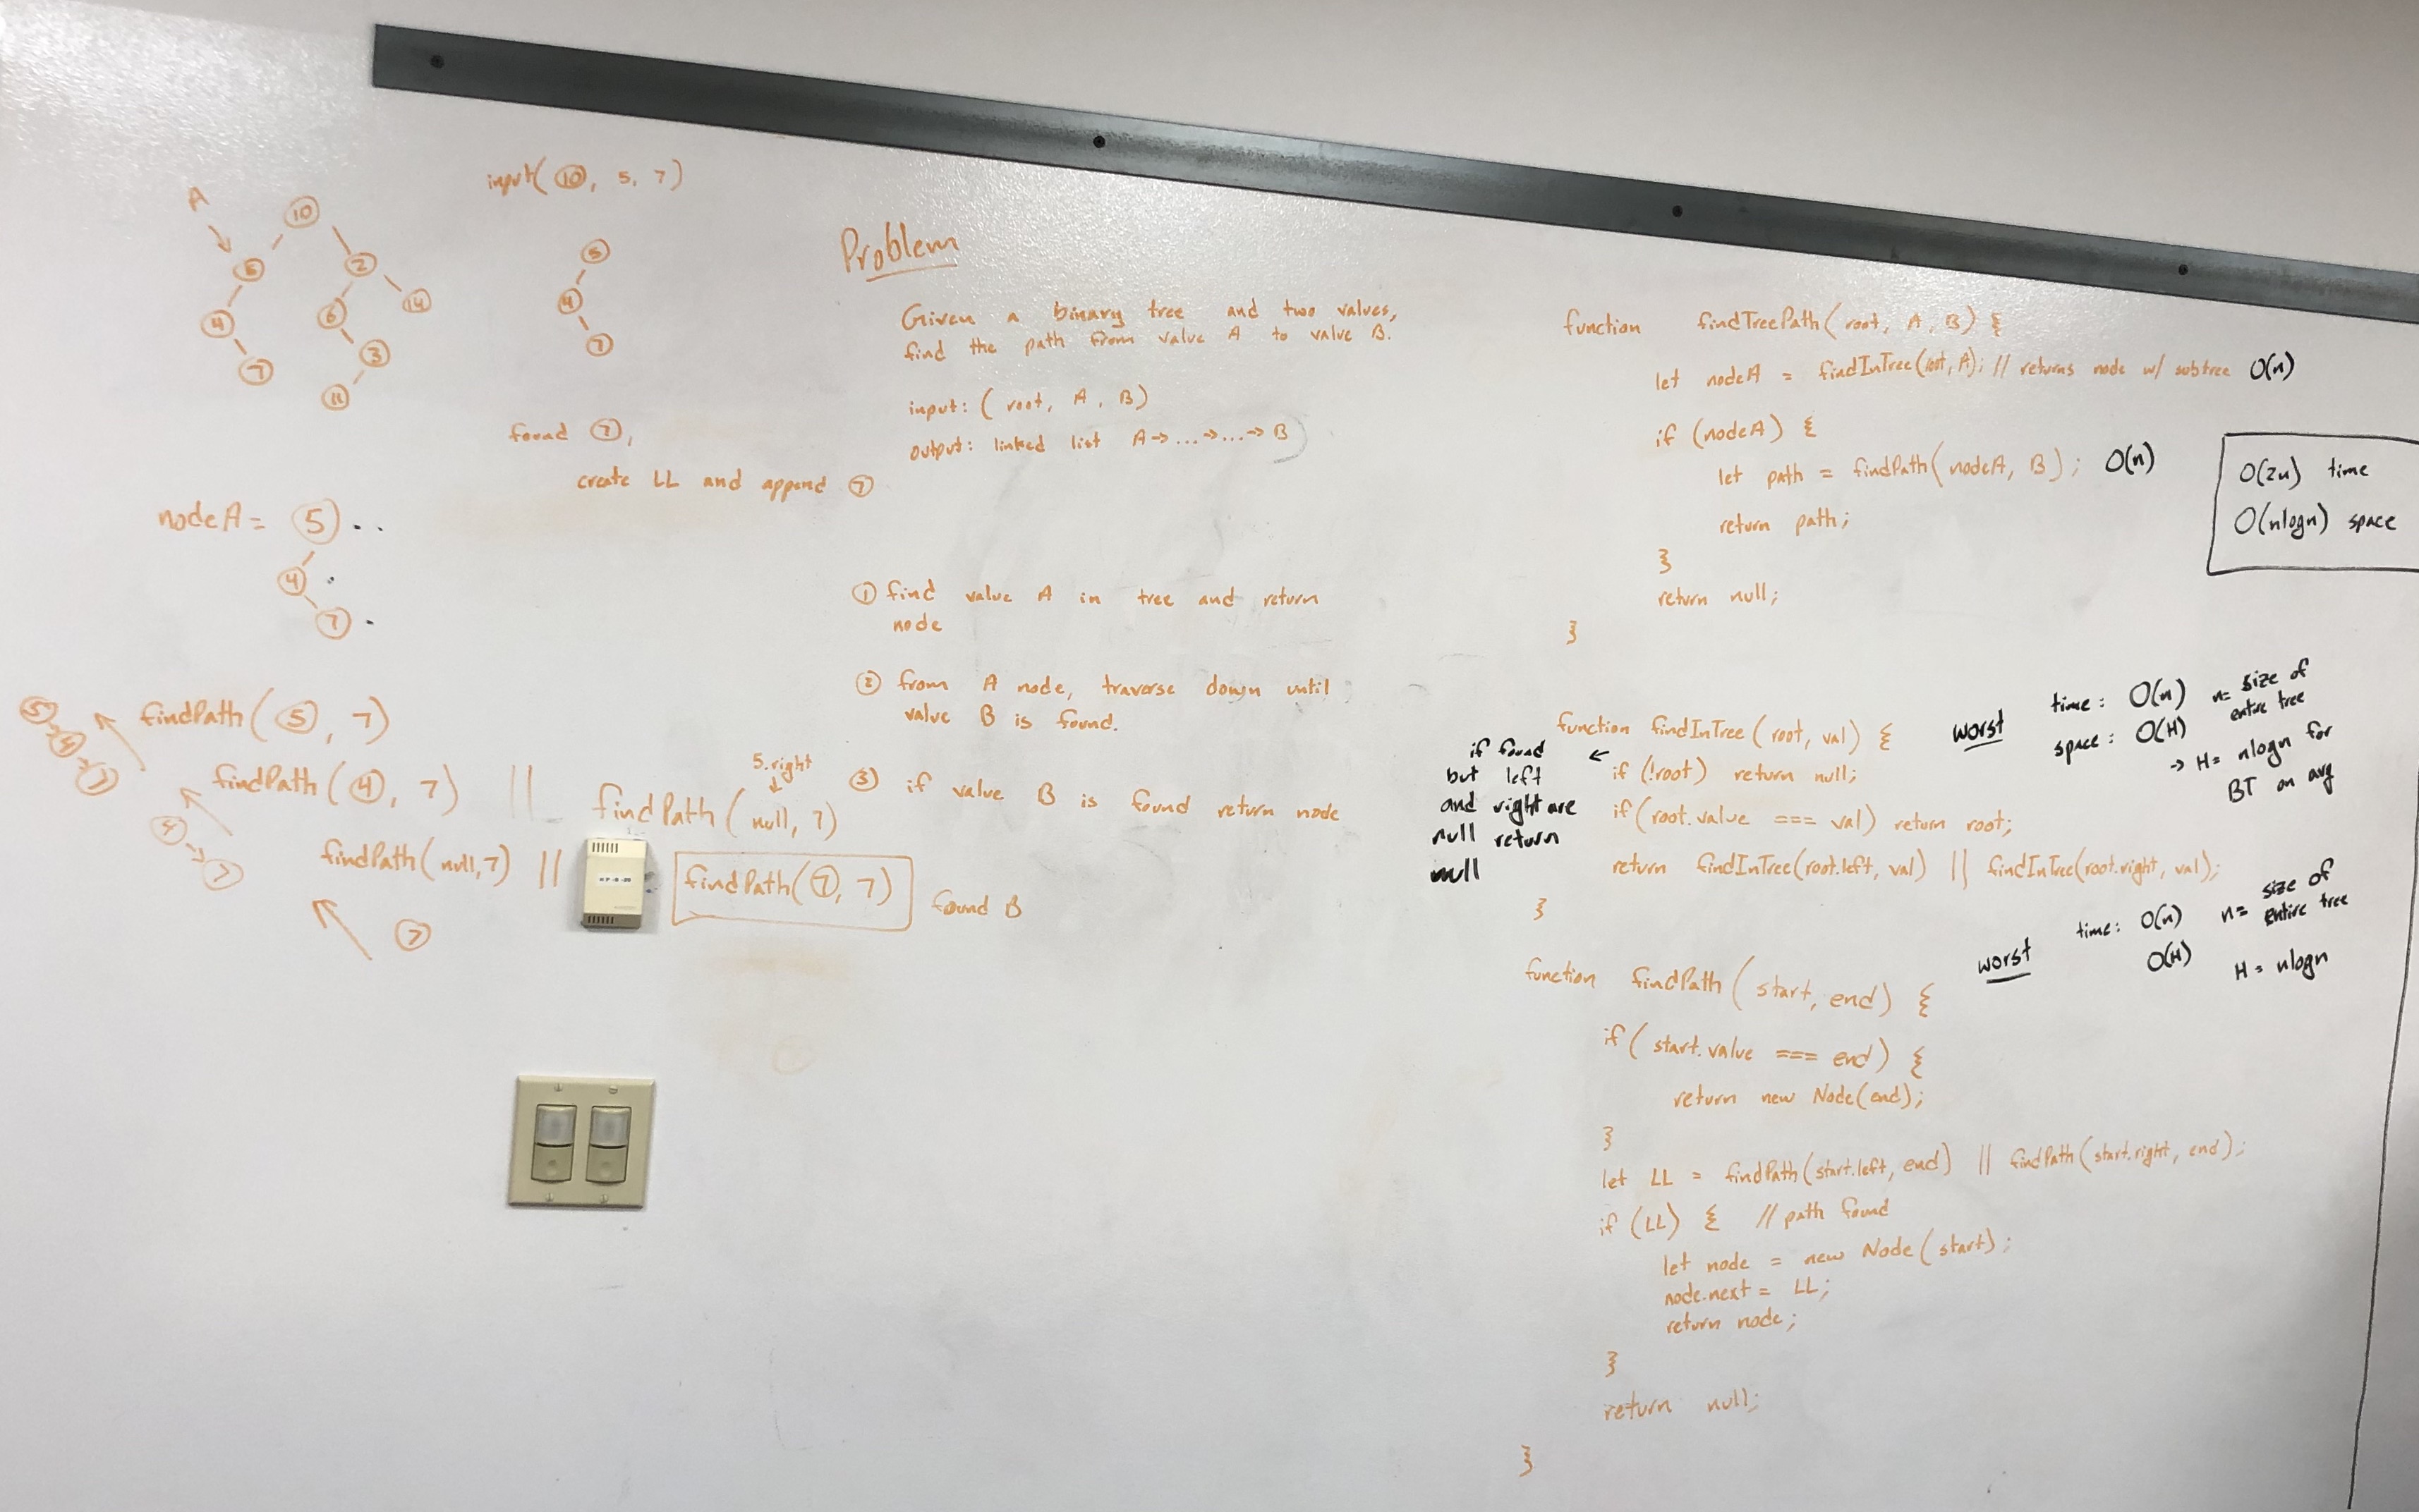 input( 10, 5, 7 )
A
10
5
2
4
6
14
7
3
11
5
4
7
found 7,
create LL and append 7
nodeA = 5
4
7
findPath( 5, 7 )
5
4
7
findPath( 4, 7 ) ||
4
7
5.right
findPath( null, 7 )
findPath( null, 7 ) ||
findPath( 7, 7 )
found B
7
Problem
Given a binary tree and two values,
find the path from value A to value B.
input: ( root, A, B )
output: linked list A → ... → ... → B
1 find value A in tree and return
node
2 from A node, traverse down until
value B is found.
3 if value B is found return node
function findTreePath( root, A, B ) {
let nodeA = findInTree(root, A); // returns node w/ subtree O(n)
if (nodeA) {
let path = findPath(nodeA, B); O(n)
return path;
}
return null;
}
O(2n) time
O(nlogn) space
function findInTree( root, val) {
if (!root) return null;
if (root.value === val) return root;
return findInTree(root.left, val) || findInTree(root.right, val);
}
if found ←
but left
and right are
null return
null
worst
time: O(n) n= size of
entire tree
space: O(H)
→ H= nlogn for
BT on avg
function findPath( start, end) {
if( start.value === end) {
return new Node(end);
}
let LL = findPath(start.left, end) || findPath(start.right, end);
if (LL) { // path found
let node = new Node(start);
node.next = LL;
return node;
}
return null;
}
worst
time: O(n) n= size of
entire tree
O(H) H= nlogn